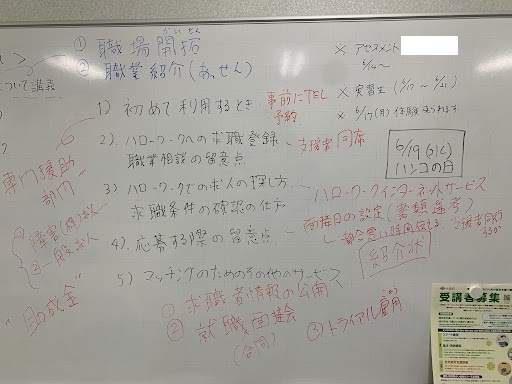 ① 職場開拓
かいたく
② 職業紹介(あっせん)
について講義
1) 初めて利用するとき
事前にTEL
予約
2). ハローワークへの求職登録
職業相談の留意点
支援者同席
3) ハローワークでの求人の探し方
求職条件の確認の仕方
ハローワークインターネットサービス
4). 応募する際の留意点
面接日の設定(書類選考)
紹介状
5) マッチングのためのその他のサービス
① 求職者情報の公開
② 就職面接会
(合同)
③ トライアル雇用
専門援助
部門
①障害(者)求人
②一般求人
"助成金"
× アセスメント
6/4〜
× 実習生(6/17 〜 6/21)
× 6/17(月)
6/19(水)
ハンコの日
受講者募集